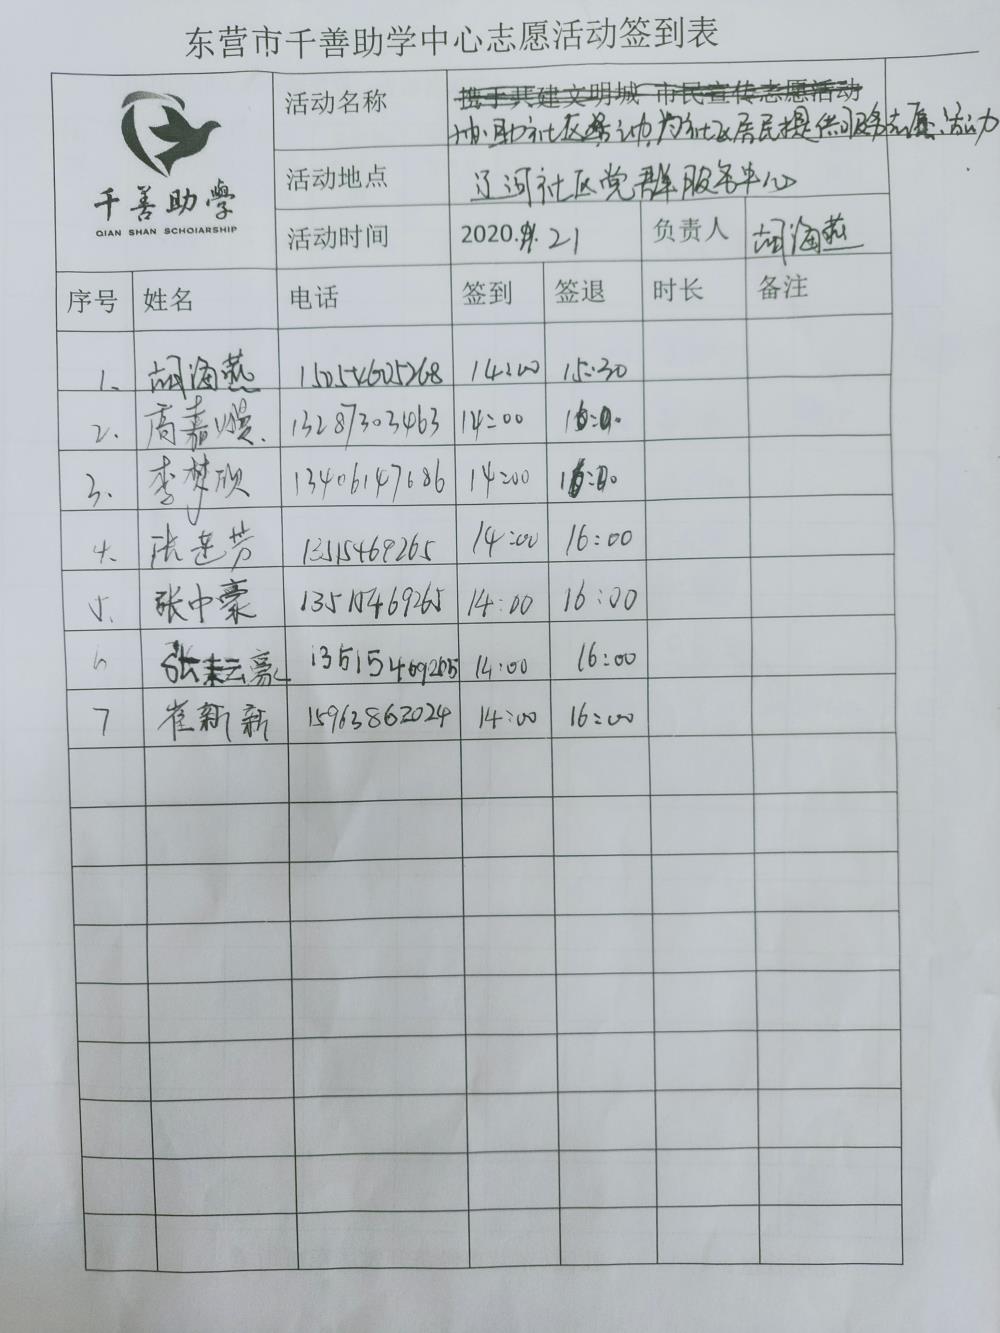 东营市千善助学中心志愿活动签到表
千善助學
QIAN SHAN SCHOIARSHIP
活动名称 携手共建文明城 市民宣传志愿活动
协助社区活动,为社区居民提供服务志愿活动
活动地点 辽河社区党群服务中心
活动时间 2020. 21 负责人 胡海燕
序号 姓名 电话 签到 签退 时长 备注
1. 胡海燕 15054605268 14:00 15:30
2. 高嘉 13287303463 14:00 16:00
3. 李梦欣 13406147686 14:00 16:00
4. 张莲芳 13515469265 14:00 16:00
5. 张中豪 13515469265 14:00 16:00
6 张云豪 13515469265 14:00 16:00
7 崔新新 15963862024 14:00 16:00